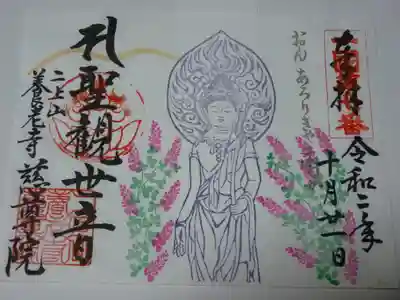 奉拝
令和二年
十月廿一日
おん あろりき
孔聖観世音
二上山
養老寺 慈尊院